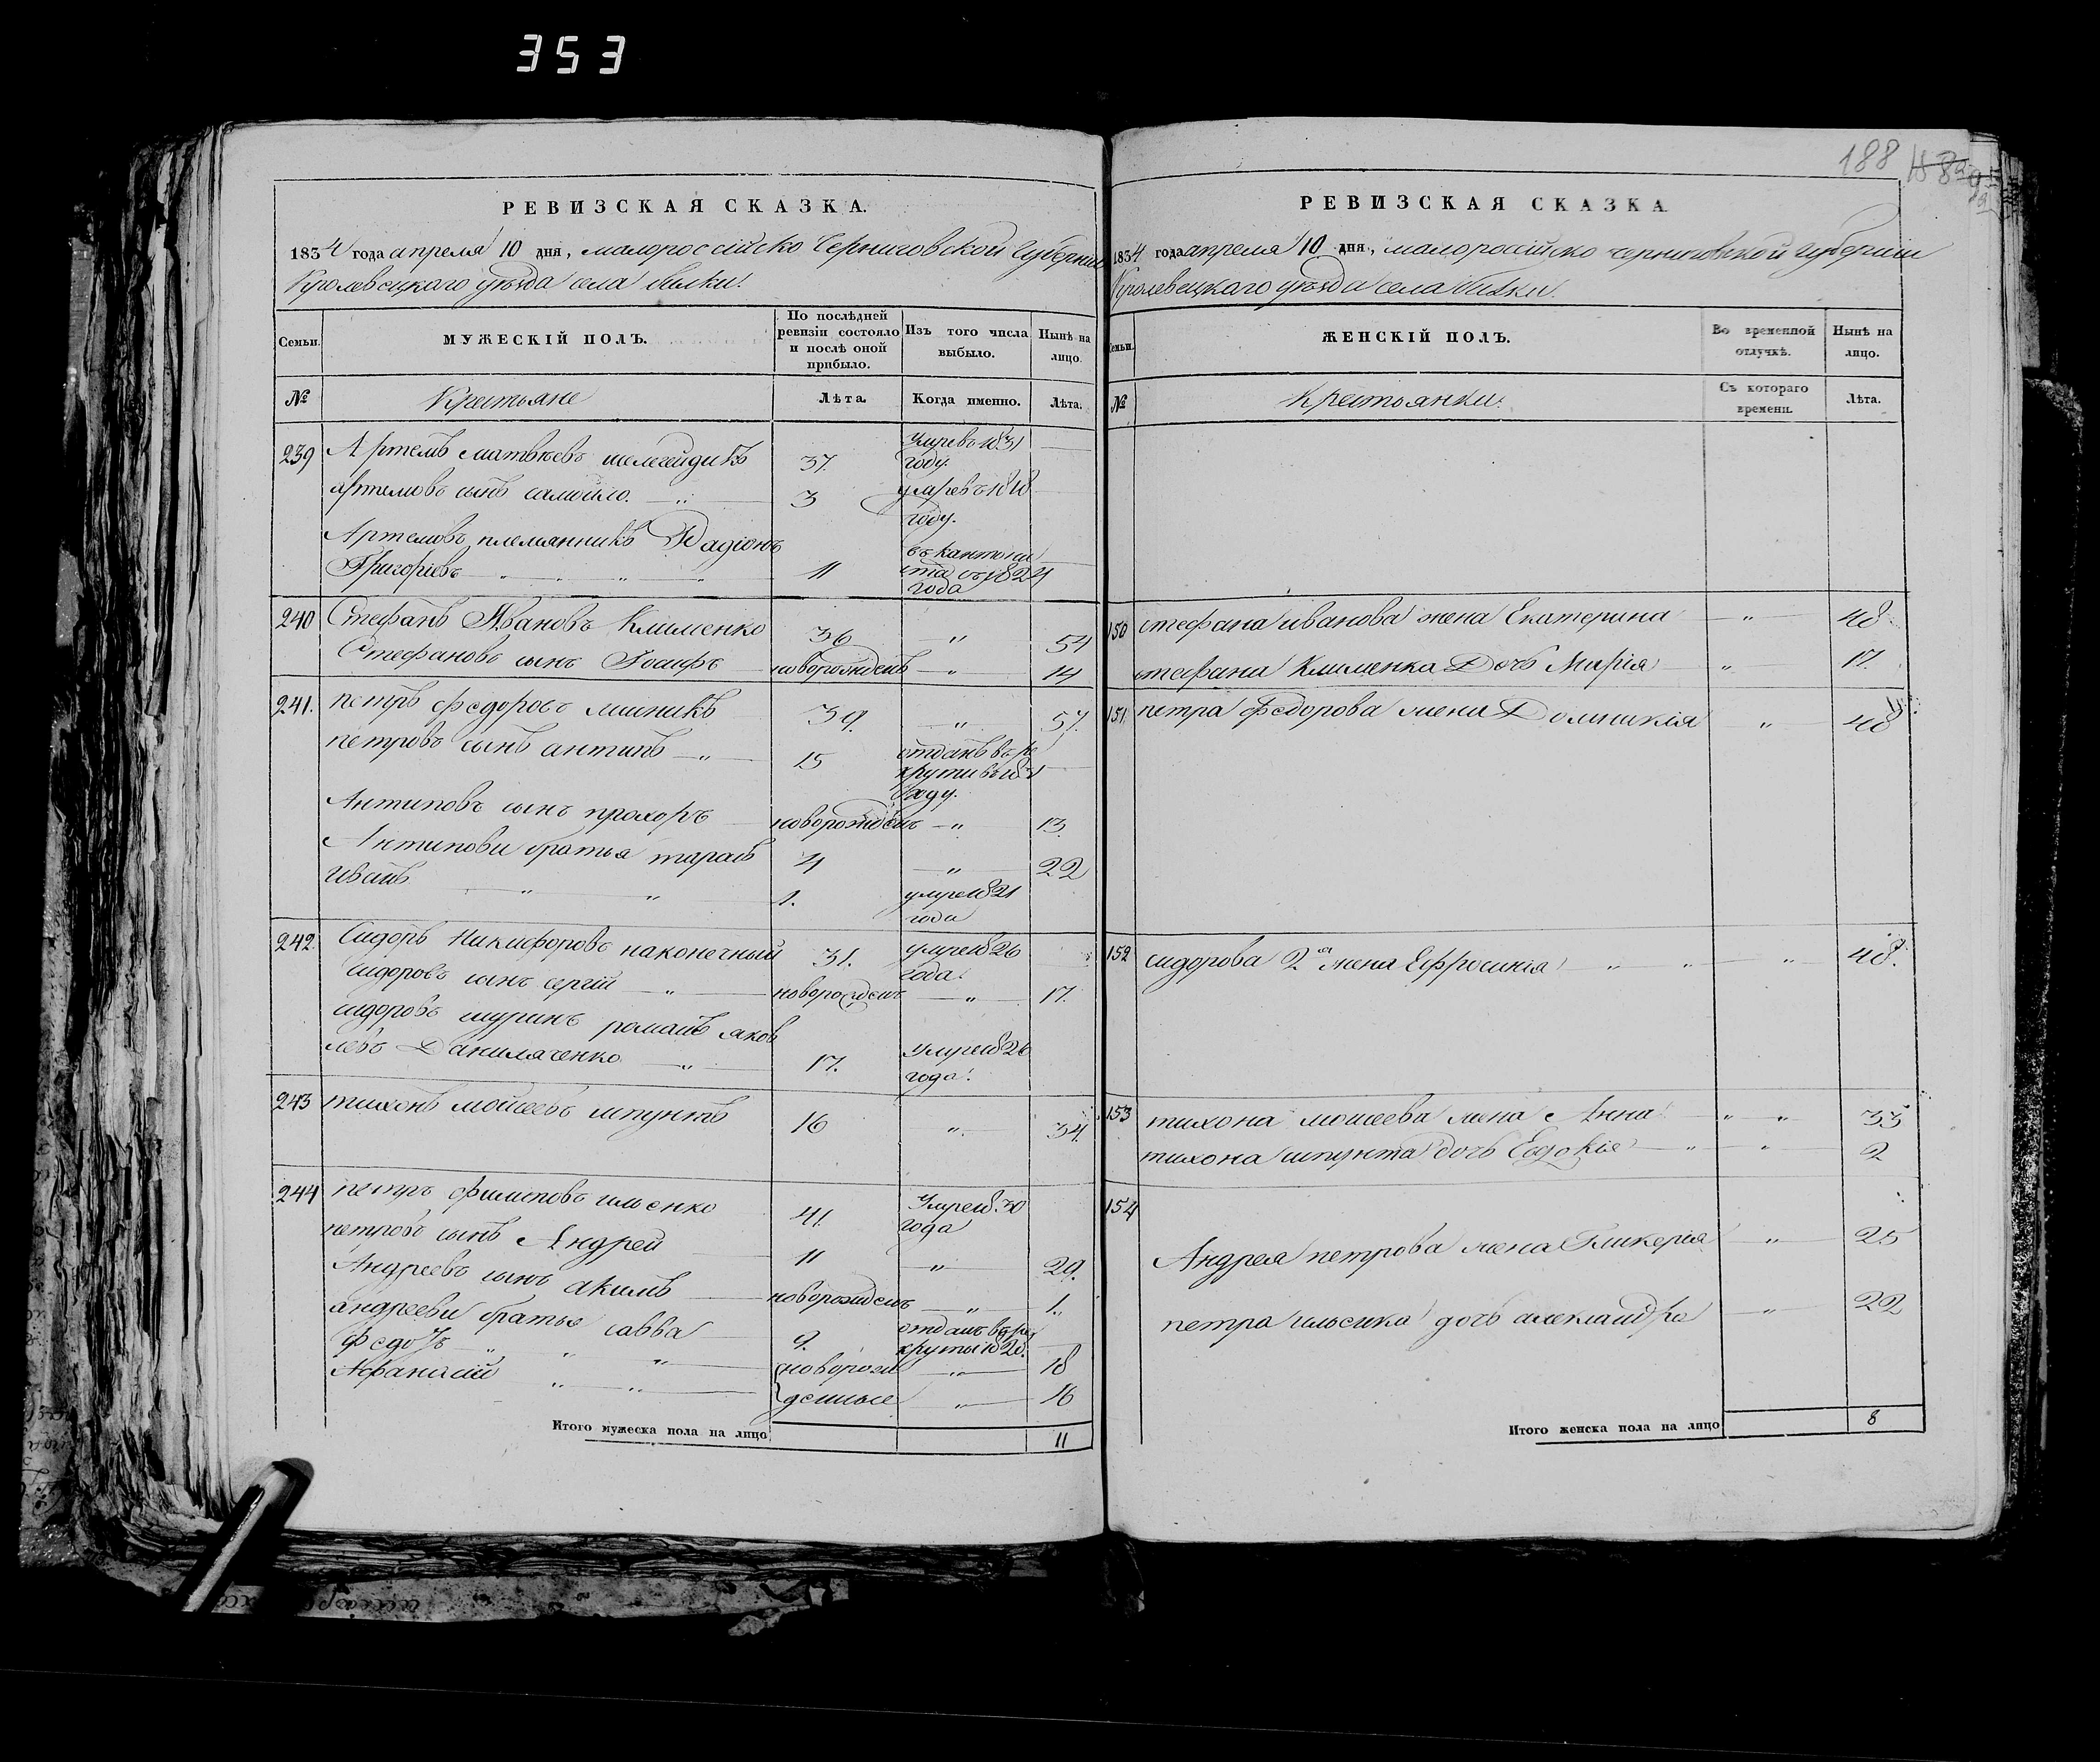 353
188
РЕВИЗСКАЯ СКАЗКА.
1834 года апреля 10 дня, малороссійско Черниговской Губерніи
Кролевецкаго уезда села билки.
Семьи.
МУЖЕСКІЙ ПОЛЪ.
По послѣдней ревизіи состояло и послѣ оной прибыло.
Изъ того числа выбыло.
Нынѣ на лицо.
№
Крестьяне
Лѣта.
Когда именно.
Лѣта.
239 Артемъ матвѣевъ 37. Умре въ 1831
году.
артемовъ сынъ самойло. „ 3 умре въ 1818
году.
Артемовъ племянникъ Радіонъ
Григоріевъ „ „ „ „ 11 въ кантони
ста съ 1824
года
240 Стефанъ Ивановъ Клименко 36 „ 54
Стефановъ сынъ Іосифъ новорожденъ „ 14
241. петръ федоровъ мшникъ 39. „ 57.
петровъ сынъ антипъ „ 15 отданъ въ ре
круты въ
году.
Антиповъ сынъ прохоръ новорожденъ „ 13.
Антипови братья тарасъ 4 „ 22
Иванъ „ „ 1. умре 1821
года
242. Сидоръ Никифоровъ наконечный 31. умре 1826
года.
сидоровъ сынъ сергій „ новорожденъ „ 17.
сидоровъ шуринъ романъ яков
левъ Даниляченко „ 17. Умре 1826
года.
243 тихонъ мойсеевъ шпунтъ 16 „ 34.
244 петръ филиповъ ильенко 41. Умре 1830
года
петровъ сынъ Андрей 11 „ 29.
Андреевъ сынъ акимъ новорожденъ „ 1.
андрееви братья савва 9. отданъ въ ре
круты 1828.
Федоръ „ „ „ новорож „ 18
Афанасій „ „ денные „ 16
Итого мужеска пола на лицо 11
РЕВИЗСКАЯ СКАЗКА
1834 года апреля 10 дня, малороссійско черниговской губерніи
Кролевецкаго уезда села билки.
Семьи.
ЖЕНСКІЙ ПОЛЪ.
Во временной отлучкѣ.
Нынѣ на лицо.
№
Крестьянки.
Съ котораго времени.
Лѣта.
150 стефана иванова жена Екатерина „ 48.
стефана Клименка Дочь Марія „ 17.
151 петра Федорова жена Домникія „ 48
152 сидорова 2я жена Ефросинія „ „ „ 48.
153 тихона мойсеева жена Анна „ „ 33
тихона шпунта дочь Евдокія „ „ 2
154
Андрея петрова жена Гликерія „ 25
петра ильенка дочь александра „ 22
Итого женска пола на лицо 8